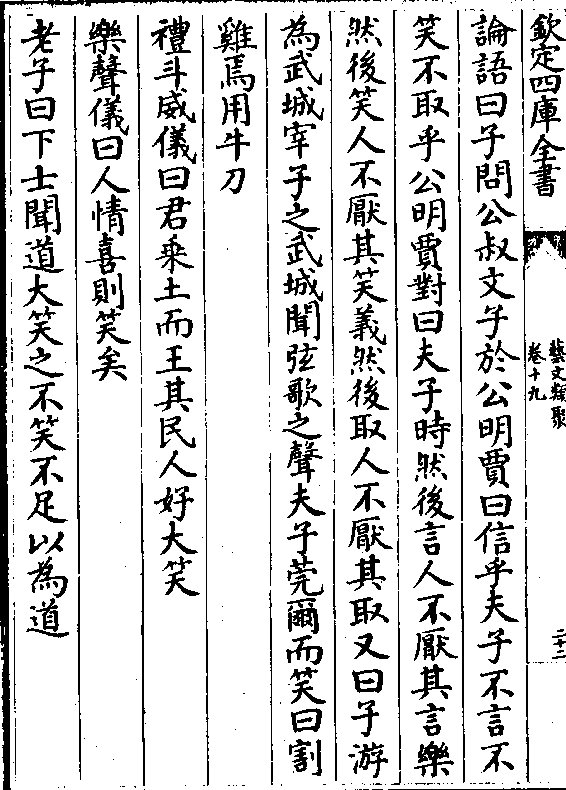 欽定四庫全書
藝文類聚
卷十九
二十二
論語曰子問公叔文子於公明賈曰信乎夫子不言不
笑不取乎公明賈對曰夫子時然後言人不厭其言樂
然後笑人不厭其笑義然後取人不厭其取又曰子游
為武城宰子之武城聞弦歌之聲夫子莞爾而笑曰割
雞焉用牛刀
禮斗威儀曰君乘土而王其民人好大笑
樂聲儀曰人情喜則笑矣
老子曰下士聞道大笑之不笑不足以為道